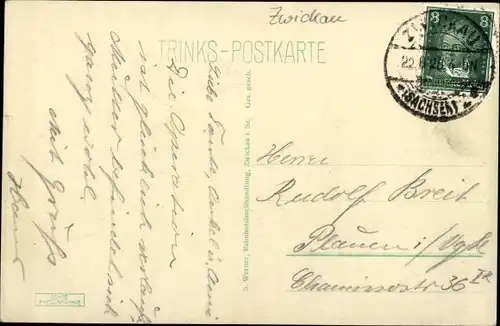 Zwickau
TRINKS-POSTKARTE
ZWICKAU
(SACHSEN)
8
8
Liebe Tante, Onkel u. Anni
Die Operation
ist glücklich verlaufen
Mutter befindet sich
ganz wohl.
Mit Gruß
Hans
S. Werner, Bahnhofsbuchhandlung, Zwickau i. Sa. Ges. gesch.
Herrn
Rudolf Breit
Plauen i/Vgtl.
Chamissostr 36 II